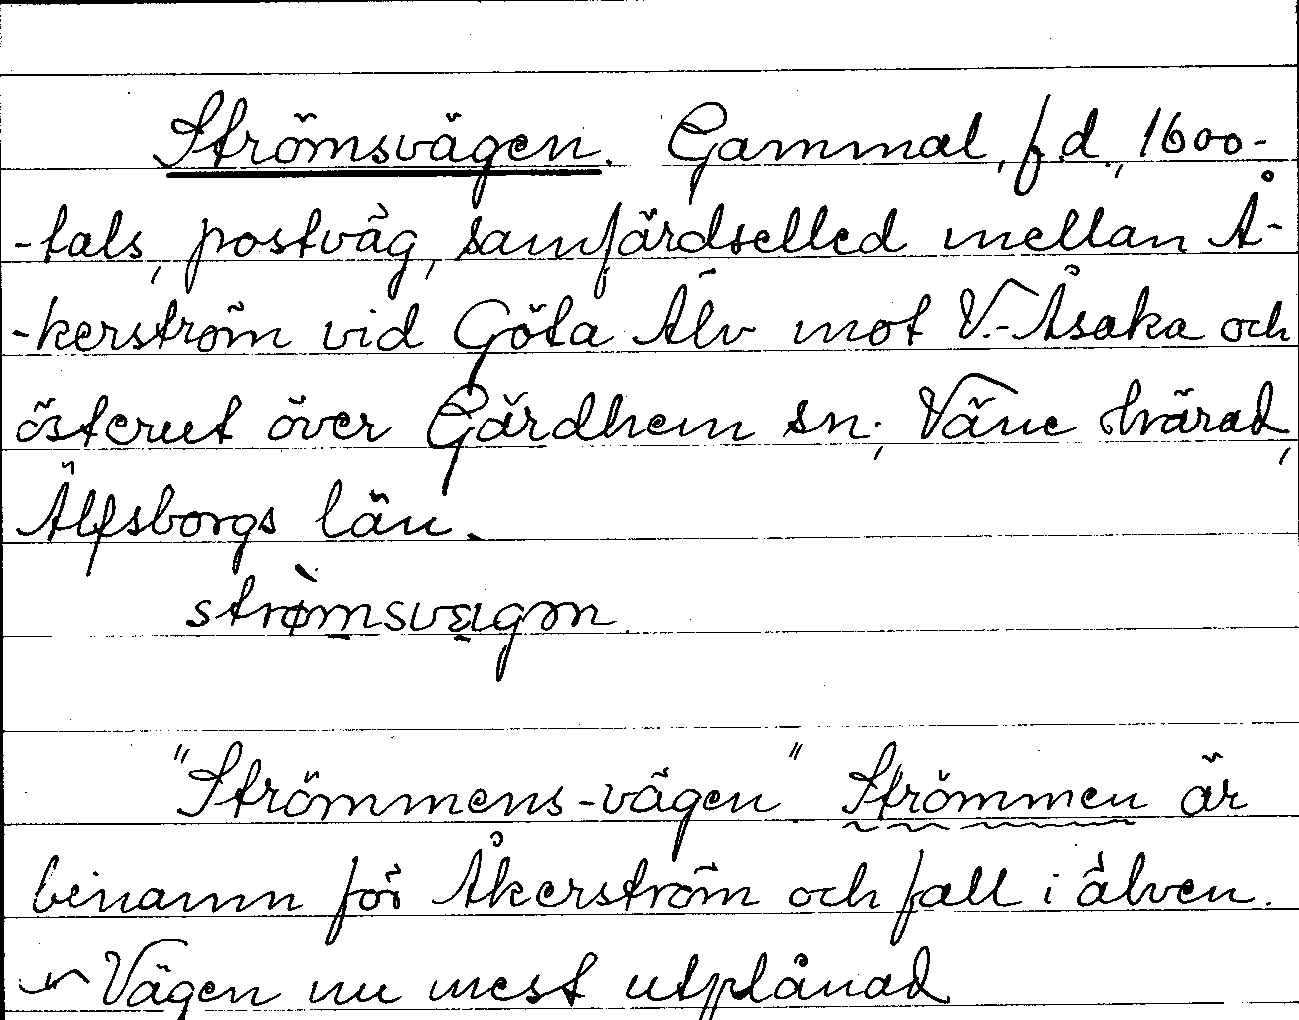 Strömsvägen. Gammal, f.d., 1600-
-tals, postväg, samfärdselled mellan Å-
-kerström vid Göta Älv mot V.-Åsaka och
österut över Gärdhem sn; Väne härad,
Älfsborgs län.
strø̀msvɛɩgən
"Strömmens-vägen" Strömmen är
binamn för Åkerström och fall i älven.
Vägen nu mest utplånad